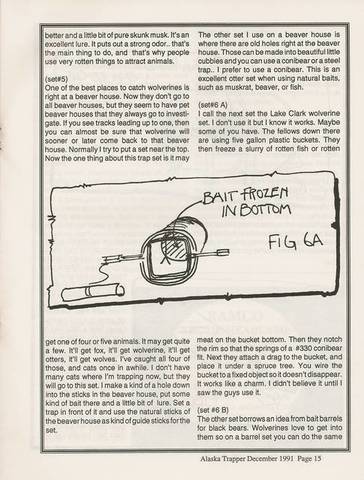 better and a little bit of pure skunk musk. It's an
excellent lure. It puts out a strong odor.. that's
the main thing to do, and that's why people
use very rotten things to attract animals.
(set#5)
One of the best places to catch wolverines is
right at a beaver house. Now they don't go to
all beaver houses, but they seem to have pet
beaver houses that they always go to investi-
gate. If you see tracks leading up to one, then
you can almost be sure that wolverine will
sooner or later come back to that beaver
house. Normally I try to put a set near the top.
Now the one thing about this trap set is it may
The other set I use on a beaver house is
where there are old holes right at the beaver
house. Those can be made into beautiful little
cubbies and you can use a conibear or a steel
trap.. I prefer to use a conibear. This is an
excellent otter set when using natural baits,
such as muskrat, beaver, or fish.
(set#6 A)
I call the next set the Lake Clark wolverine
set. I don't use it but I know it works. Maybe
some of you have. The fellows down there
are using five gallon plastic buckets. They
then freeze a slurry of rotten fish or rotten
BAIT FROZEN
IN BOTTOM
FIG 6A
get one of four or five animals. It may get quite
a few. It'll get fox, it'll get wolverine, it'll get
otters, it'll get wolves. I've caught all four of
those, and cats once in awhile. I don't have
many cats where I'm trapping now, but they
will go to this set. I make a kind of a hole down
into the sticks in the beaver house, put some
kind of bait there and a little bit of lure. Set a
trap in front of it and use the natural sticks of
the beaver house as kind of guide sticks for the
set.
meat on the bucket bottom. Then they notch
the rim so that the springs of a #330 conibear
fit. Next they attach a drag to the bucket, and
place it under a spruce tree. You wire the
bucket to a fixed object so it doesn't disappear.
It works like a charm. I didn't believe it until I
saw the guys use it.
(set #6 B)
The other set borrows an idea from bait barrels
for black bears. Wolverines love to get into
them so on a barrel set you can do the same
Alaska Trapper December 1991 Page 15